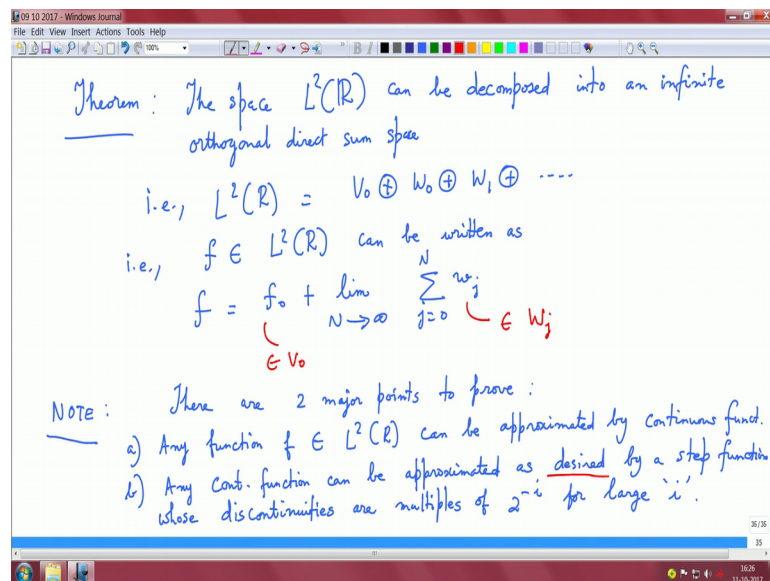 09 10 2017 - Windows Journal
File Edit View Insert Actions Tools Help
100%
Theorem : The space L²(ℝ) can be decomposed into an infinite
orthogonal direct sum space
i.e., L²(ℝ) = V₀ ⊕ W₀ ⊕ W₁ ⊕ ....
i.e., f ∈ L²(ℝ) can be written as
f = f₀ + lim N→∞ ∑ j=0 N wⱼ
∈ V₀ ∈ Wⱼ
NOTE : There are 2 major points to prove :
a) Any function f ∈ L²(ℝ) can be approximated by continuous funct.
b) Any cont. function can be approximated as desired by a step function
whose discontinuities are multiples of 2⁻ⁱ for large `i'.
36/36
35
16:26
11-10-2017